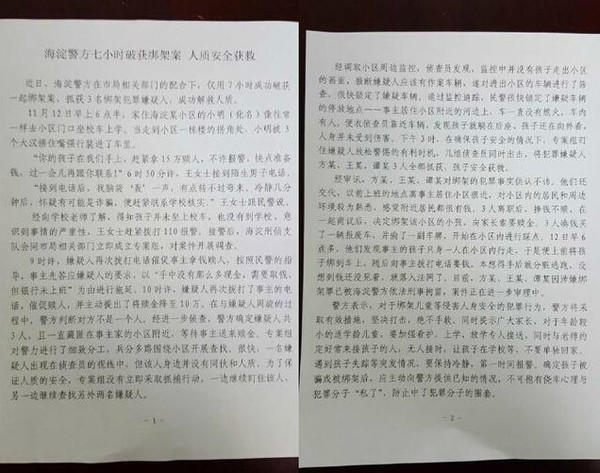 海淀警方七小时破获绑架案 人质安全获救
近日，海淀警方在市局相关部门的配合下，仅用7小时成功破获
一起绑架案，抓获3名绑架犯罪嫌疑人，成功解救人质。
11月12日早上6点半，家住海淀某小区的小明（化名）像往常
一样去小区门口坐校车上学。当走到小区一栋楼的拐角处，小明被3
个大汉捂住嘴强行装进了车里。
“你的孩子在我们手上，赶紧拿15万赎人，不许报警，快点准备
钱，过一会儿再跟你联系！”6时50分许，王女士接到陌生男子电话。
“接到电话后，我脑袋‘轰’一声，有点转不过弯来，冷静几分
钟后，怀疑有可能是诈骗，便赶紧联系学校核实。”王女士跟民警说。
经向学校老师了解，得知孩子并未坐上校车，也没有到学校，意
识到事情的严重性，王女士赶紧拨打110报警。接警后，海淀刑侦支
队会同市局相关部门立即成立专案组，对案件开展调查。
9时许，嫌疑人再次拨打电话催促事主拿钱赎人，按照民警的指
导，事主先答应嫌疑人的要求，以“手中没有那么多现金，需要取钱，
但银行未上班”为由进行拖延。10时许，嫌疑人再次拨打了事主的电
话，催促赎人，并主动提出了将赎金降至10万。在与嫌疑人周旋的过程
中，警方判断对方不是一个人。经进一步侦查，警方确定嫌疑人共
3人，且一直藏匿在事主家的小区附近，等待事主送来赎金。专案组
对警力进行了细致分工，兵分多路围绕小区开展查找。很快，一名嫌
疑人出现在侦查员的视线中，但该人身边并没有同伙和人质。为了保
证人质的安全，专案组没有立即采取抓捕行动，一边继续盯住该人，
另一边继续查找另外两名嫌疑人。
- 1 -
经调取小区周边监控，侦查员发现，监控中并没有孩子走出小区
的画面，推断嫌疑人应该有作案车辆，遂对进出小区的车辆进行了筛
查，很快锁定了嫌疑车辆。通过监控追踪，民警很快锁定了嫌疑车辆
的停放地点——事主居住小区附近的河边上，车一直没有熄火，车内
有人。便衣侦查员靠近车辆，发现孩子就躺在后座，孩子还在向外看，
人身并未受到伤害。下午3时，在确保孩子安全的情况下，专案组可
打嫌疑人放松警惕的有利时机，几组侦查员同时出击，将犯罪嫌疑人
方某、王某、谭某3人全部抓获，孩子安全获救。
经审讯，方某、王某、谭某对绑架的犯罪事实供认不讳。他们还
交代，以前上班的地点离事主居住小区很近，对小区内的居民和周边
环境较为熟悉，感觉附近居民都很有钱。3人离职后，挣钱不顺，在
一起商议后，决定绑架该小区的小孩，向家长索要赎金。3人凑钱买
了一辆报废车，并偷了一副车牌，开始在小区内进行踩点。12日早6
点多，他们发现事主的孩子只身一人在小区内行走，于是便上前将孩
子绑到车上，随后向事主拨打电话要钱。本想得手后就分赃逃跑，没
想到钱还没见着，就落入法网了。目前，方某、王某、谭某因涉嫌绑
架罪已被海淀警方依法刑事拘留，案件正在进一步审理中。
警方表示，对于绑架儿童等侵害人身安全的犯罪行为，警方将采
取有效措施，坚决打击，绝不手软。同时提示广大家长，对于年龄较
小的适学龄儿童，要加强看护。上学、放学专人接送，同时与老师约
定好常来接孩子的人，无人接时，让孩子在学校等，不要单独回家。
遇到孩子失踪等突发情况，要保持冷静，第一时间报警。确定孩子被
骗或被绑架后，应主动向警方提供已知的情况，不可抱有侥幸心理与
犯罪分子“私了”，防止中了犯罪分子的圈套。
- 2 -